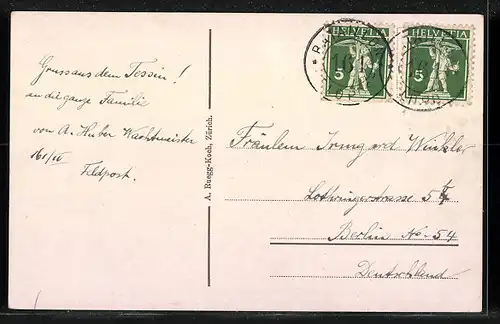 HELVETIA HELVETIA
5 5
Gruss aus dem Tessin!
an die ganze Familie
von A. Huber Wachtmeister
161/IV
Feldpost.
A. Ruegg-Koch, Zürich.
Fräulein Irmgard Winkler
Lothringerstrasse 54
Berlin No-54
Deutschland